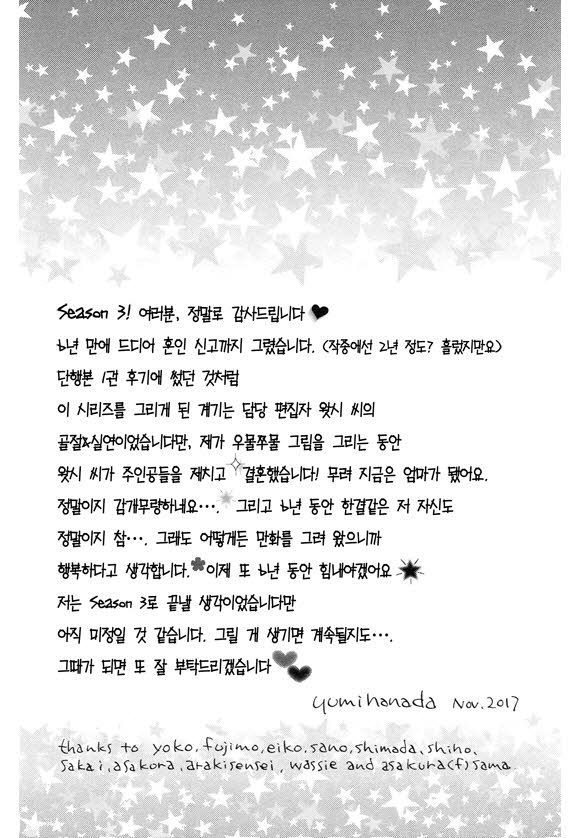 Season 3! 여러분, 정말로 감사드립니다
6년 만에 드디어 혼인 신고까지 그렸습니다. (작중에선 2년 정도? 흘렀지만요)
단행본 1권 후기에 썼던 것처럼
이 시리즈를 그리게 된 계기는 담당 편집자 왓시 씨의
골절&실연이었습니다만, 제가 우물쭈물 그림을 그리는 동안
왓시 씨가 주인공들을 제치고 결혼했습니다! 무려 지금은 엄마가 됐어요.
정말이지 감개무량하네요···. 그리고 6년 동안 한결같은 저 자신도
정말이지 참···. 그래도 어떻게든 만화를 그려 왔으니까
행복하다고 생각합니다. 이제 또 6년 동안 힘내야겠어요
저는 Season 3로 끝낼 생각이었습니다만
아직 미정일 것 같습니다. 그릴 게 생기면 계속될지도···.
그때가 되면 또 잘 부탁드리겠습니다
yumihanada Nov.2017
thanks to yoko, fujimo, eiko, sano, shimada, shiho,
sakai, asakora, arakisensei, wassie and asakura(f)sama